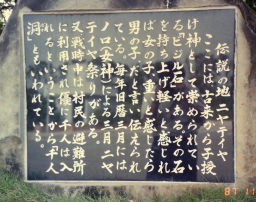 伝説の地ニヤテイヤ
ここには、古来から子授
け神として崇められてい
る「ビジル石」がある。その石
を持ち上げ軽いと感じれ
ば女の子、重いと感じたら
男の子だと言い伝えられ
ている。毎年旧暦三月には
ノロ(女神)による三月ニヤ
テイヤ祭りがある。
又戦時中は村民の避難所
に利用され優に千人は入
れるということから「千人
洞」ともいわれている。
87 11